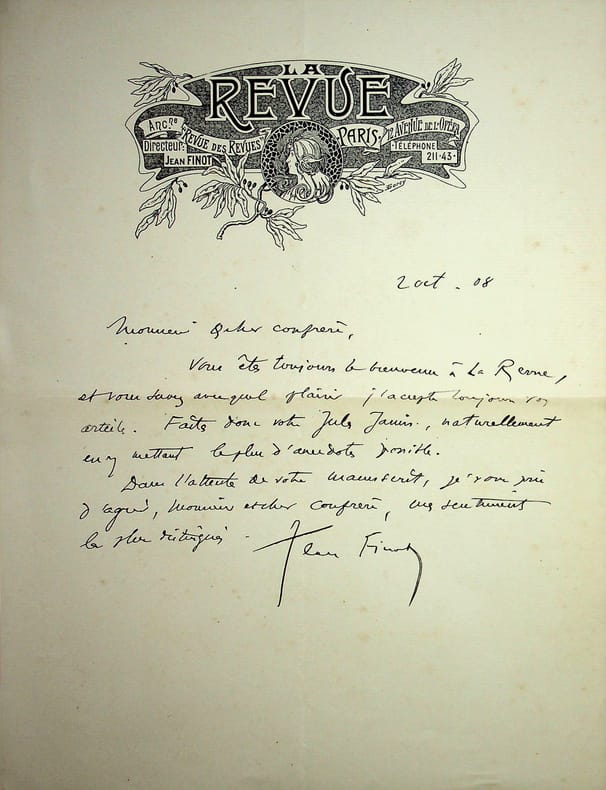 LA
REVUE
Ancne "REVUE DES REVUES"
Directeur:
JEAN FINOT
PARIS. 12 AVENUE DE L'OPÉRA
TÉLÉPHONE
211-43
2 oct. 08
Monsieur & cher confrère,
Vous êtes toujours le bienvenu à La Revue,
et vous savez avec quel plaisir j'accepte toujours vos
articles. Faites donc votre Jules Janin, naturellement
en y mettant le plus d'anecdotes possible.
Dans l'attente de votre manuscrit, je vous prie
d'agréer, Monsieur et cher confrère, mes sentiments
les plus distingués.
Jean Finot